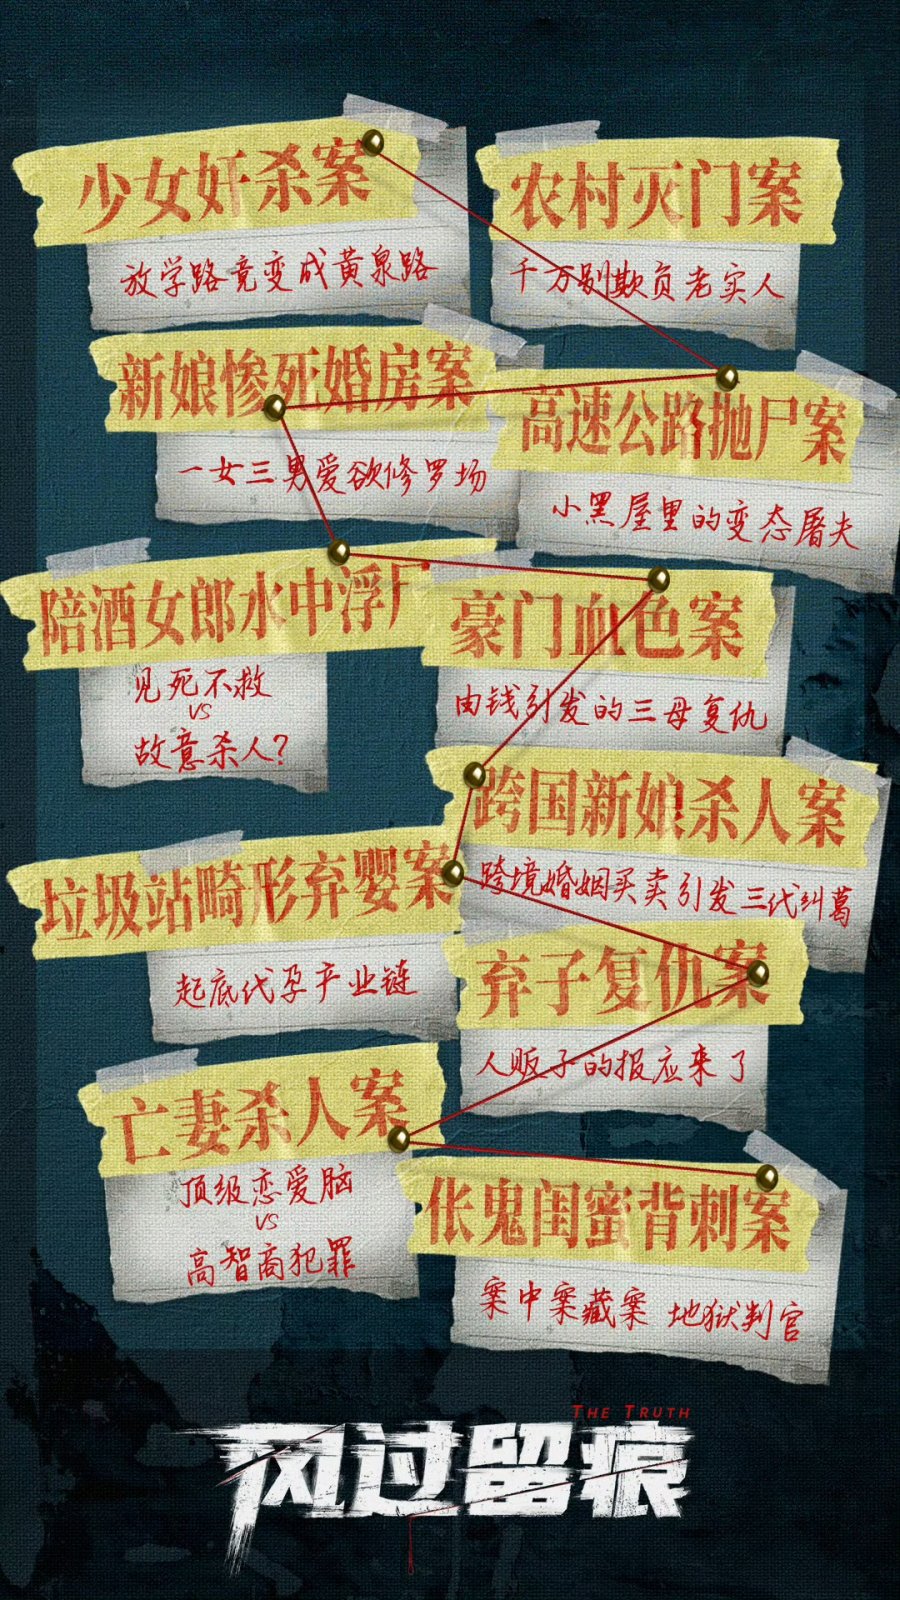 少女奸杀案
放学路竟变成黄泉路
农村灭门案
千万别欺负老实人
新娘惨死婚房案
一女三男爱欲修罗场
高速公路抛尸案
小黑屋里的变态屠夫
陪酒女郎水中浮尸
见死不救
VS
故意杀人?
豪门血色案
由钱引发的三母复仇
跨国新娘杀人案
跨境婚姻买卖引发三代纠葛
垃圾站畸形弃婴案
起底代孕产业链
弃子复仇案
人贩子的报应来了
亡妻杀人案
顶级恋爱脑
VS
高智商犯罪
伥鬼闺蜜背刺案
案中案藏案 地狱判官
THE TRUTH
风过留痕